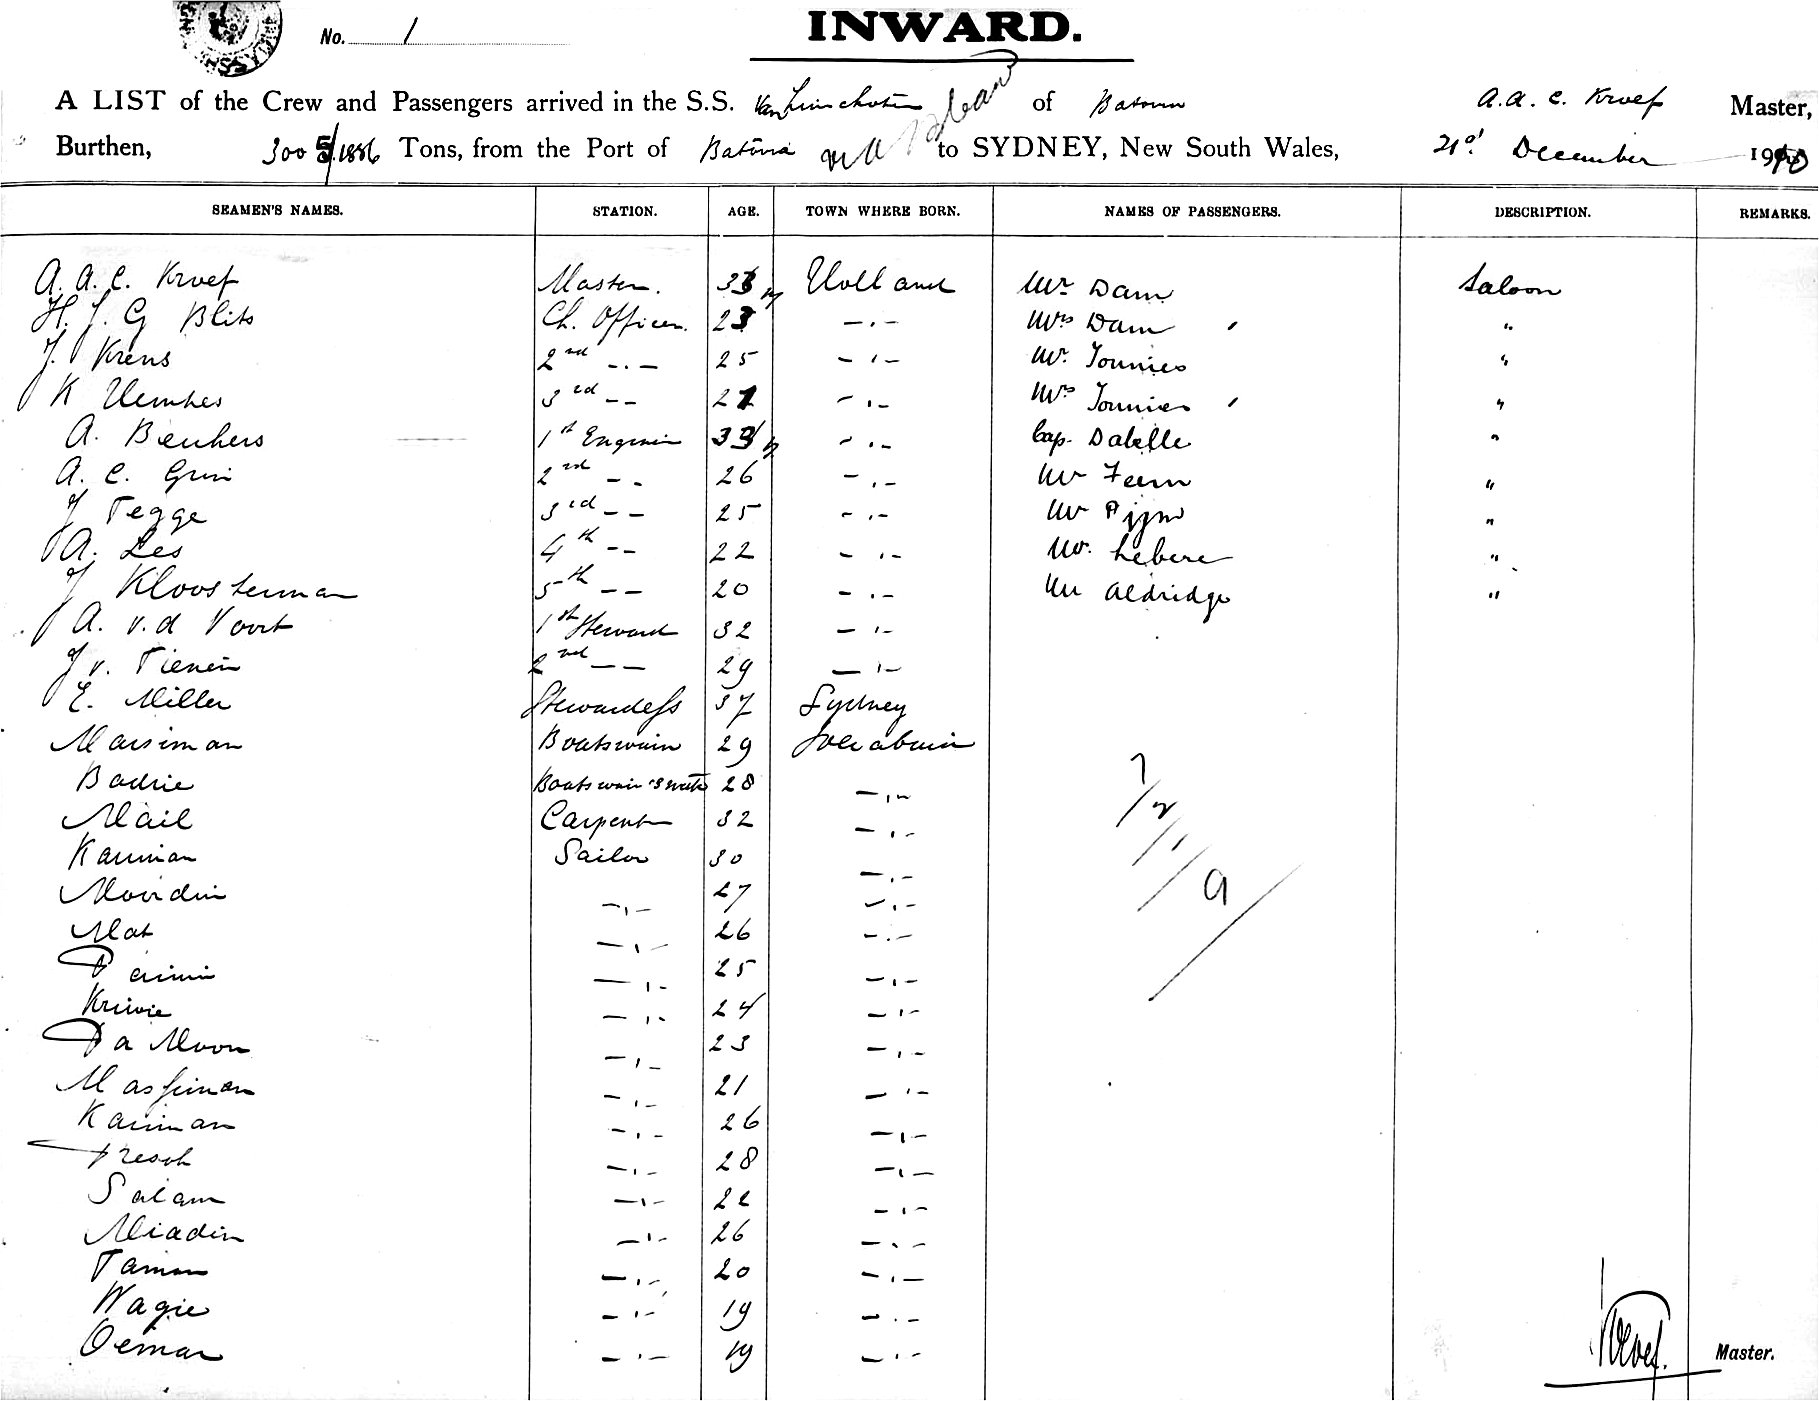 No. 1
INWARD.
A LIST of the Crew and Passengers arrived in the S.S. Van Linschoten of Batavia A. A. C. Kroef Master,
Burthen, 3005/1886 Tons, from the Port of Batavia to SYDNEY, New South Wales, 21st December 1910
SEAMEN'S NAMES. STATION. AGE. TOWN WHERE BORN. NAMES OF PASSENGERS. DESCRIPTION. REMARKS.
A. A. C. Kroef Master. Holland Mr Dam Saloon
H. J. G Blits Ch. Officer. 23 —.— Mrs Dam "
J. Krens 2nd —.— 25 —.— Mr. Tonnies "
K 3rd —— —.— Mrs Tonnies "
A. Beukers 1st —.— Cap. Dalelle "
A. C. Grin 2nd —— 26 —.— Mr "
J Tegge 3rd —— 25 —.— Mr "
A. Les 4th —— 22 —.— Mr. Lebere "
J Kloosterman 5th —— 20 —.— Mr Aldridge "
A. v.d Voort 1st Steward 32 —.—
J v. Tienen 2nd —— 29 —.—
E. Miller Stewardess 37 Sydney
Marsiman Boatswain 29 Soerabaia
Badrie Boatswain's mate 28 —.—
Mail Carpenter 32 —.—
Kariman Sailor 30 —.—
Moordin —.— 27 —.—
Mat —.— 26 —.—
—.— 25 —.—
—.— 24 —.—
Pa Moon —.— 23 —.—
Massiman —.— 21 —.—
Kariman —.— 26 —.—
Presoh —.— 28 —.—
Salam —.— 22 —.—
Miadin —.— 26 —.—
Taman —.— 20 —.—
Wagie —.— 19 —.—
Oemar —.— 19 —.—
Kroef. Master.